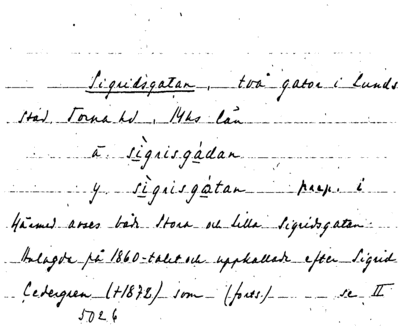 Sigridsgatan, två gator i Lunds
stad Torna hd, Mhs län
ä sìgrisgádan
y sìgrisgátan prep. i
Härmed avses både Stora och Lilla Sigridsgatan.
Anlagda på 1860-talet och uppkallade efter Sigrid
Cedergren (†1872) som (forts.) se II
5026